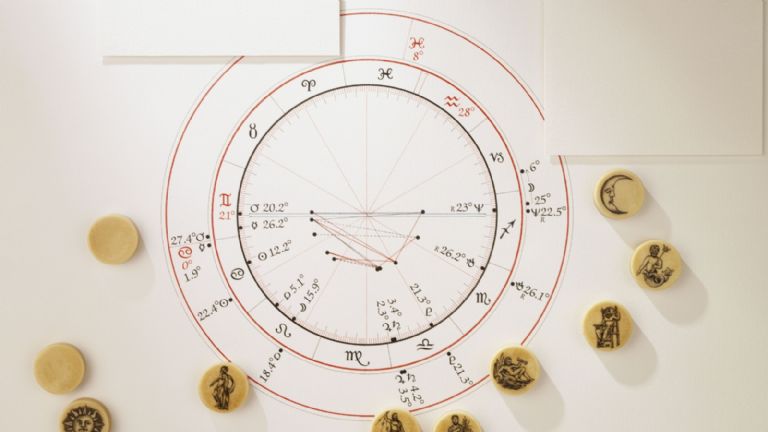 ♓
8°
♓
♈
♒
28°
♉
♑
6°
☽
♊
21°
♂ 20.2°
℞ 23° ♆
25°
♆22.5°
℞
☿ 26.2°
♐
27.4°♂
☿
♋
0°
1.9°
☉ 12.2°
℞ 26.2° ♅
♋
22.4°☉
5.1°
☽15.9°
2.3°
3.4°
♃♄
21.3°
♇
♏
♅26.1°
℞
♌
♍
♎
18.4°
♃♄
3.5°
4.2°
♇21.3°